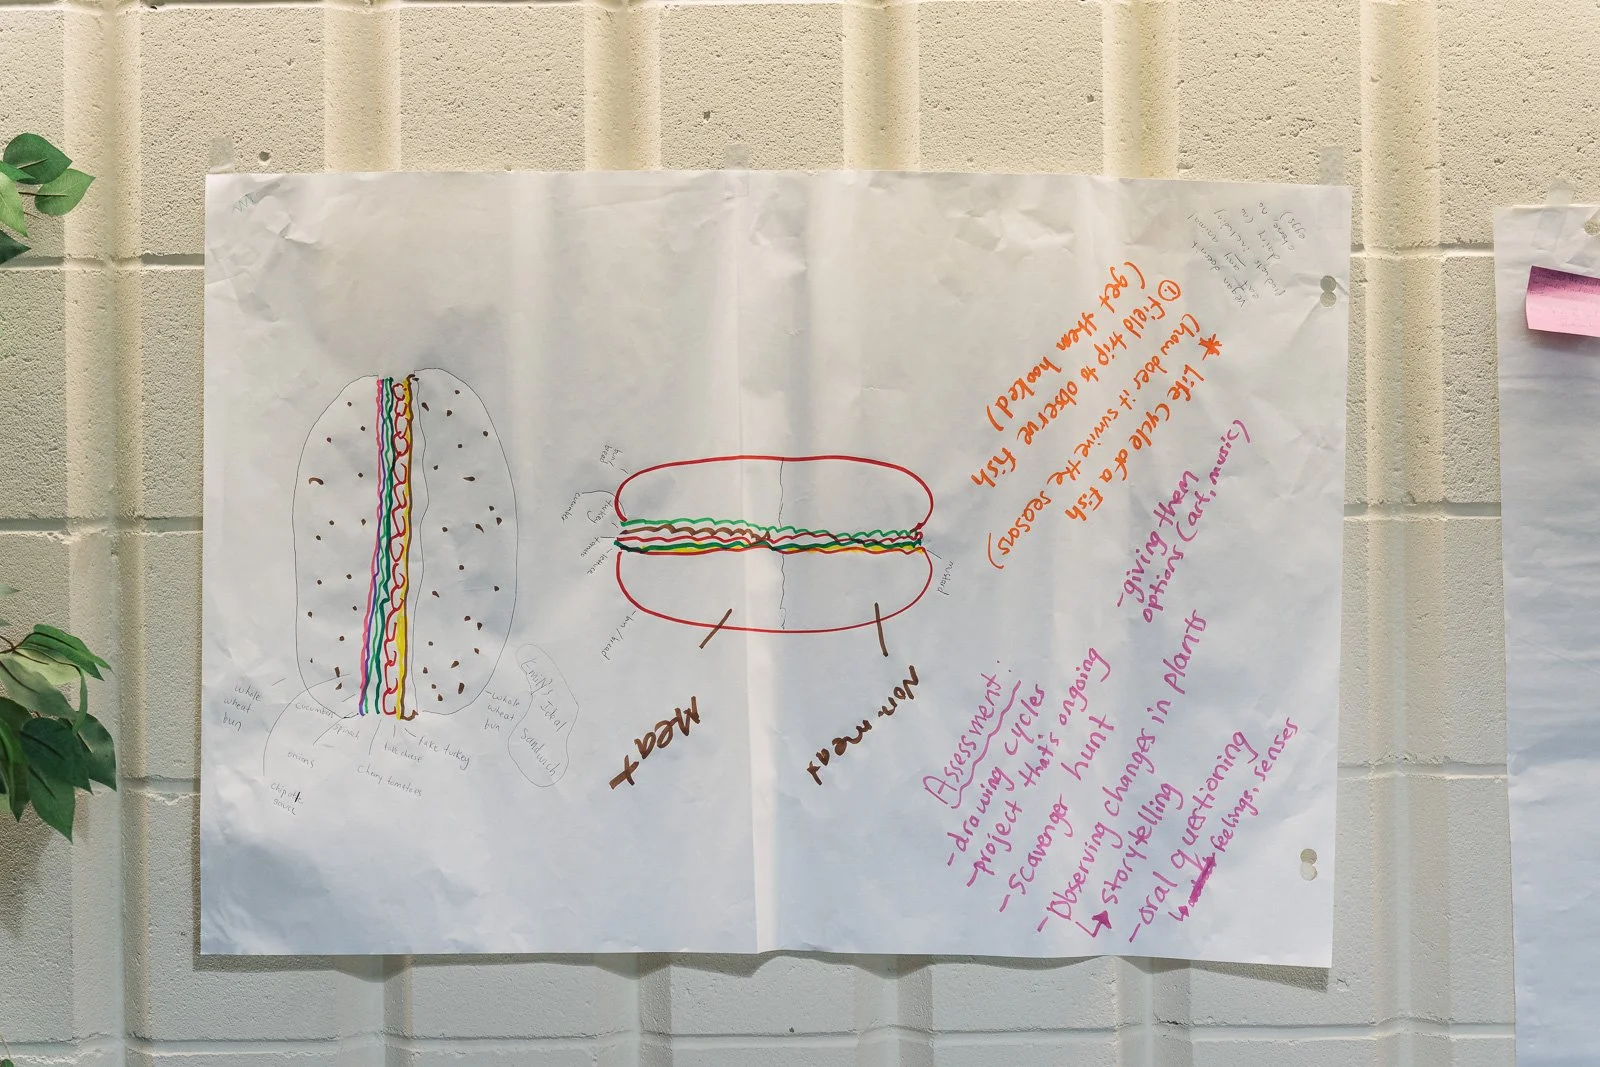 vegan doesn't
eat any animal
products including
dairy (no
cheese, no
eggs)
* Life cycle of a fish
(how does it survive the seasons)
① Field trip to observe fish
(get them hooked)
-giving them
options (art, music)
Assessment:
- drawing cycles
- project that's ongoing
- Scavenger hunt
- Observing changes in plants
↳ storytelling
- oral questioning
↳ feelings, senses
bread
cucumber
turkey
tomato
lettuce
bun/bread
mustard
Meat
Non-meat
Emily's Ideal
Sandwich
whole
wheat
bun
cucumbers
spinach
onions
chipotle
sauce
fake cheese
cherry tomatoes
fake turkey
-whole
wheat
bun